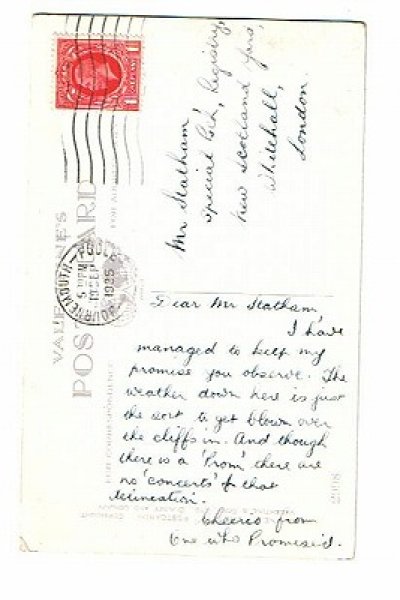 Mr Statham
Special Bch, Registry,
New Scotland Yard,
Whitehall,
London.
BOURNEMOUTH - POOLE
5 PM
SEP
1935
VALENTINE'S
POST CARD
FOR CORRESPONDENCE
Dear Mr Statham,
I have
managed to keep my
promise you observe. The
weather down here is just
the sort to get blown over
the cliffs in. And though
there is a 'Prom' there are
no 'concerts' for that
delineation.
Cheerio from
One who Promised.